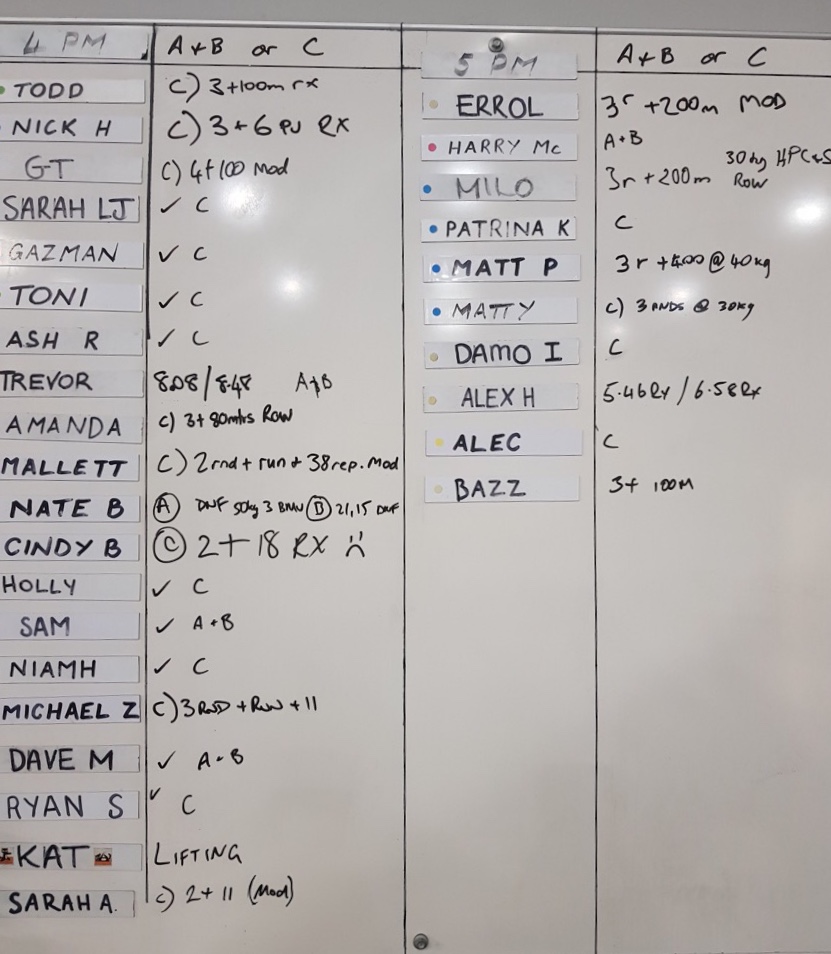 4 PM A+B or C
TODD C) 3+100m rx
NICK H C) 3+6 PU RX
GT C) 4+100 Mod
SARAH LJ ✓ C
GAZMAN ✓ C
TONI ✓ C
ASH R ✓ C
TREVOR 8:08/8:48 A+B
AMANDA C) 3+80mtrs Row
MALLETT C) 2rnd + run + 38rep. Mod
NATE B Ⓐ DNF 50kg 3 Ⓑ 21,15 DNF
CINDY B Ⓒ 2+18 RX
HOLLY ✓ C
SAM ✓ A+B
NIAMH ✓ C
MICHAEL Z C) 3RND + Run + 11
DAVE M ✓ A-B
RYAN S ✓ C
KAT LIFTING
SARAH A. C) 2+11 (Mod)
5 PM A+B or C
ERROL 3r +200m MOD
HARRY Mc A+B
MILO 3r +200m Row 30kg HPC+S
PATRINA K C
MATT P 3r +400 @ 40kg
MATTY C) 3 RNDS @ 30kg
DAMO I C
ALEX H 5.46Rx / 6.58Rx
ALEC C
BAZZ 3+ 100M